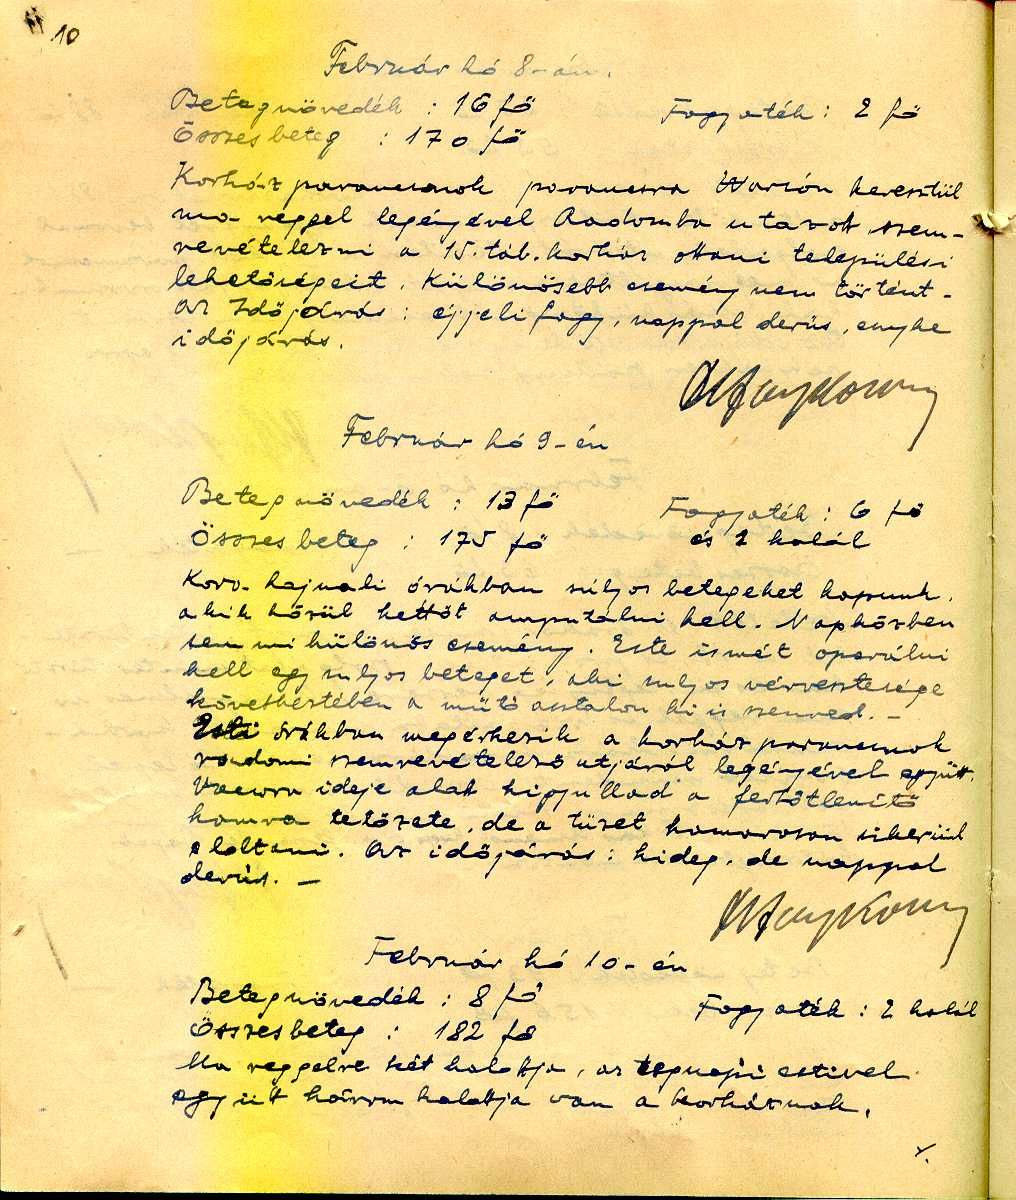 10
Február hó 8-án.
Betegnövedék : 16 fő Fogyaték : 2 fő
Összesbeteg : 170 fő
Korház parancsnok parancsra Varsón keresztül
ma reggel legényével Radomba utazott szem-
revételezni a 15. táb. korház ottani települési
lehetőségeit. Különösebb esemény nem történt.-
Az Időjárás : éjjeli fagy, nappal derüs, enyhe
időjárás.
Február hó 9-én
Betegnövedék : 13 fő Fogyaték : 6 fő
Összesbeteg : 175 fő és 2 halál
Kora hajnali órákban súlyos betegeket kapunk,
akik közül kettőt amputálni kell. Napközben
semmi különös esemény. Este ismét operálni
kell egy súlyos beteget, aki súlyos vérvesztesége
következtében a műtő asztalon ki is szenved. -
Esti órákban megérkezik a korház parancsnok
radomi szemrevételező utjáról legényével együtt.
Vacsora ideje alatt kigyullad a fertőtlenítő
kamra tetőzete, de a tüzet hamarosan sikerül
eloltani. Az időjárás : hideg, de nappal
derüs. -
Február hó 10-én
Betegnövedék : 8 fő Fogyaték : 2 halál
Összesbeteg : 182 fő
Ma reggelre két halottja, az tegnapi estivel
együtt három halottja van a korháznak.